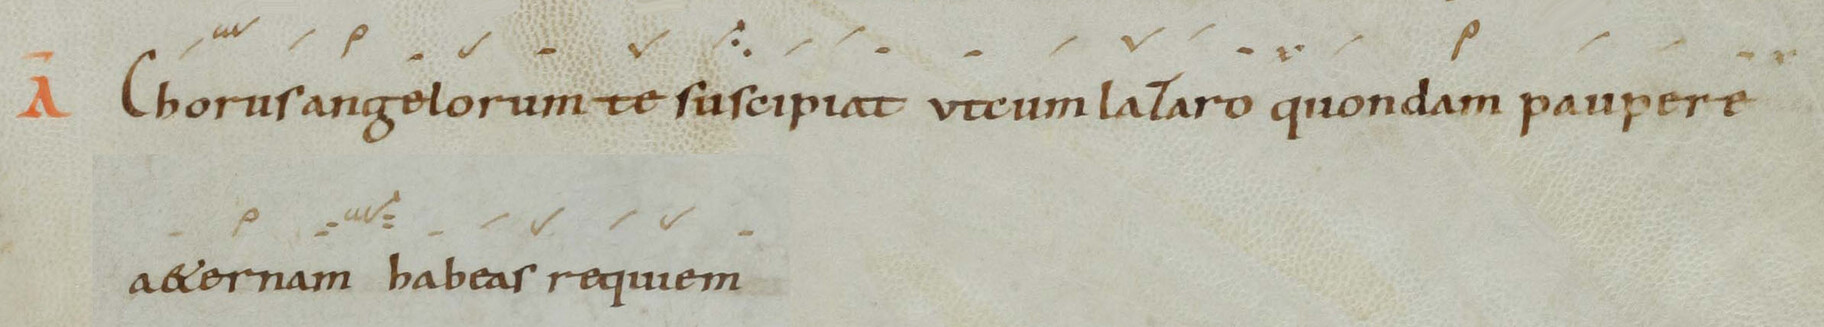 Ā Chorus angelorum te suscipiat vt cum lazaro quondam paupere
a&ernam habeas requiem